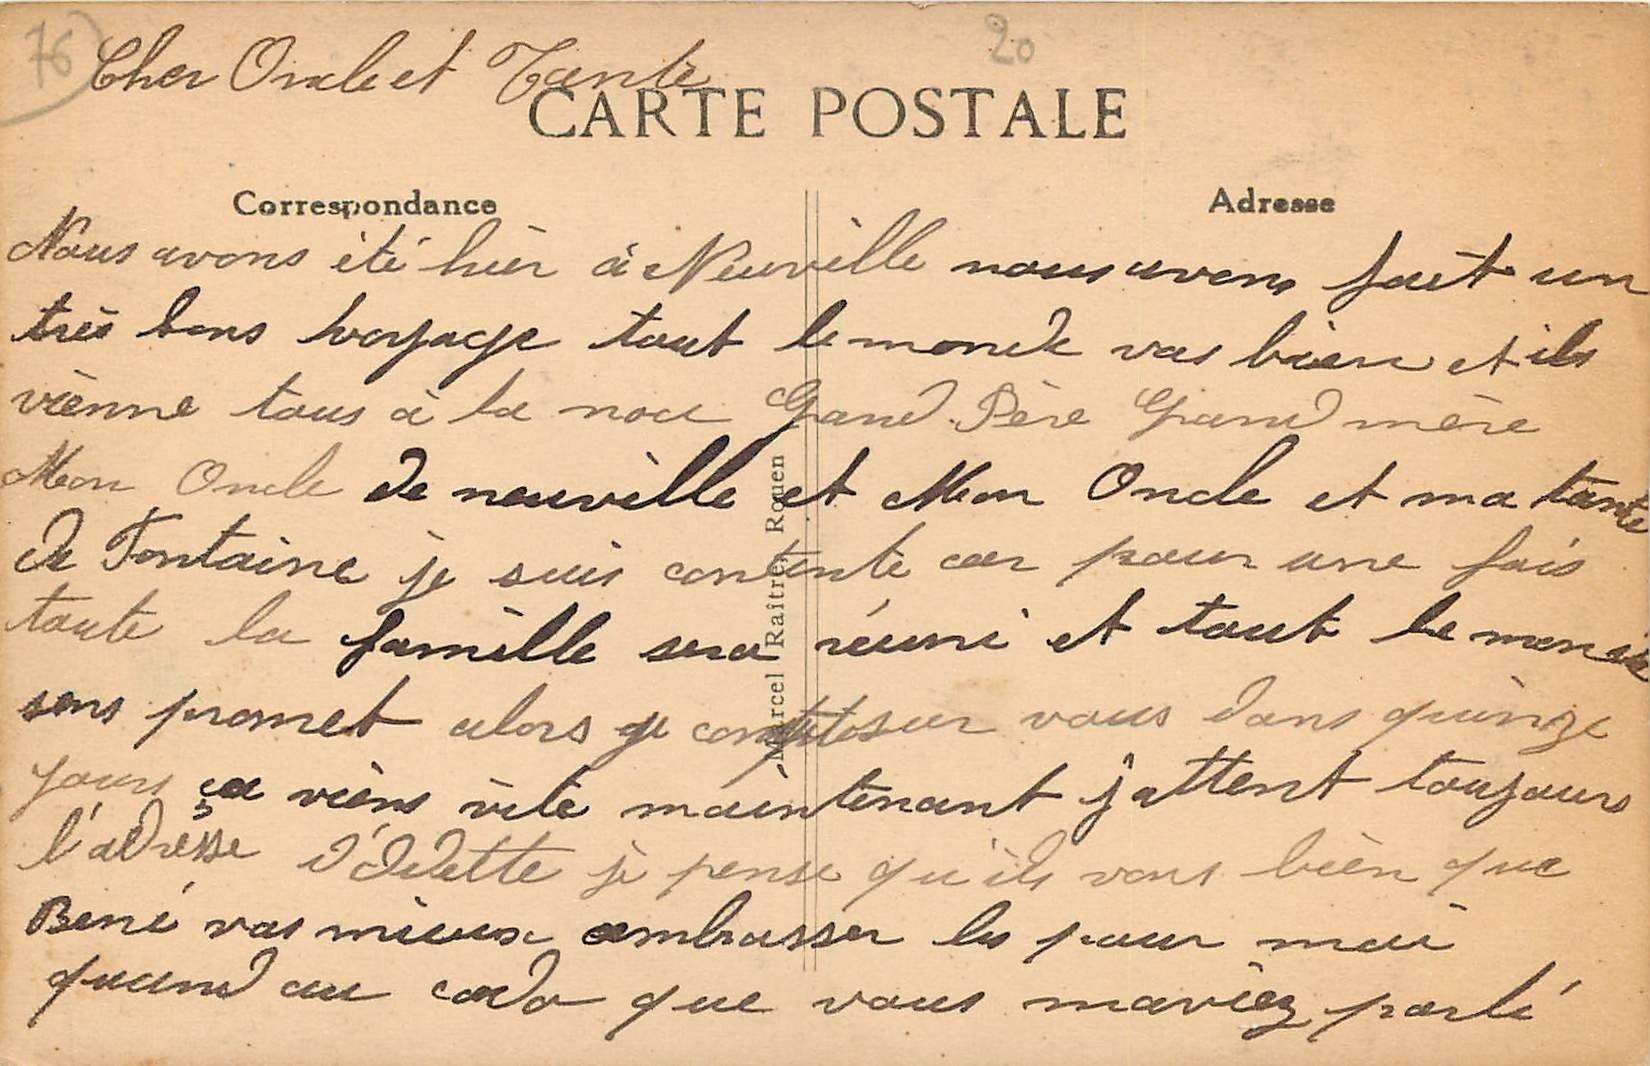 76
20
Cher Oncle et Tante
CARTE POSTALE
Correspondance
Adresse
Nous avons été hièr à Neuville nous avons fait un
très bons voyage tout le monde vas bien et ils
vienne tous à la noce Grand Père Grand mère
Mon Oncle de neuville et Mon Oncle et ma tante
de Fontaine je suis contente car pour une fois
toute la famille sera réuni et tout le monde
sens promet alors je compte sur vous dans quinze
jours ça viens vite maintenant j'attent toujours
l'adresse d'Odette je pense qu'ils vons bien que
René vas mieux ambrasser les pour moi
quand au cado que vous maviez parlé
Marcel Raîtret, Rouen